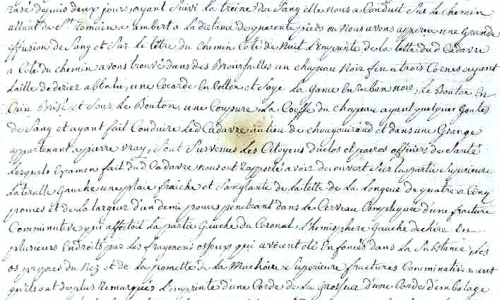 rasé depuis deux jours, ayant Suivi la treine du Sang elles nous a Conduit Sur Le chemin
allant de St Romain a Lambert a La distance de quarente pieds ou Nous avons apperçu une Grande
effusion de Sang et Sur Le tertre du Chemin Coté de Nuit L'empreinte de la tette du Cadavre
a Coté du chemin avons trouvé dans des Broussailles un chapeau Noir fin a trois Cornes ayant
L'aille de derier abbatu, une Cocarde en Cotton et Soye La Ganse en Ruban noir, Le Bouton en
Crin et Sous Le Bouton, une Coupure La Coëffe du chapeau ayant quelques Goutes
de Sang et ayant fait Conduire Led Cadavre au lieu de et dans une Grange
appartenant a pierre vray, Sont Survenus Les Citoyens duclos et officiers de Santé
Lesquels Examen fait du Cadavre nous ont Rapporté avoir decouvert Sur La partie Superieure
Lateralle Gauche une plaie fraiche et Sanglante de La tette de La Longeur de quatre a Cinq
pouces et de La largeur d'un demi pouce penetrant dans le Cerveau Compliquée d'une fracture
Comminutive qui affectoit La partie Gauche du Coronal, L'hemisphere Gauche dechiré En
plusieurs Endroits par Les fragmens osseux qui avoient eté Enfoncés dans La Substance, Les
os propres du Nez et de La pomette de La Machoire Superieure fracturés Comminativement
qu'ils ont de plus Remarqués L'emprinte d'une Corde de La Grosseur d'une Corde d'embalage